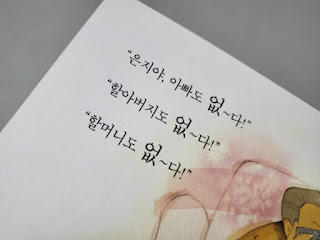 “은지야, 아빠도 없~다!”
“할아버지도 없~다!”
“할머니도 없~다!”